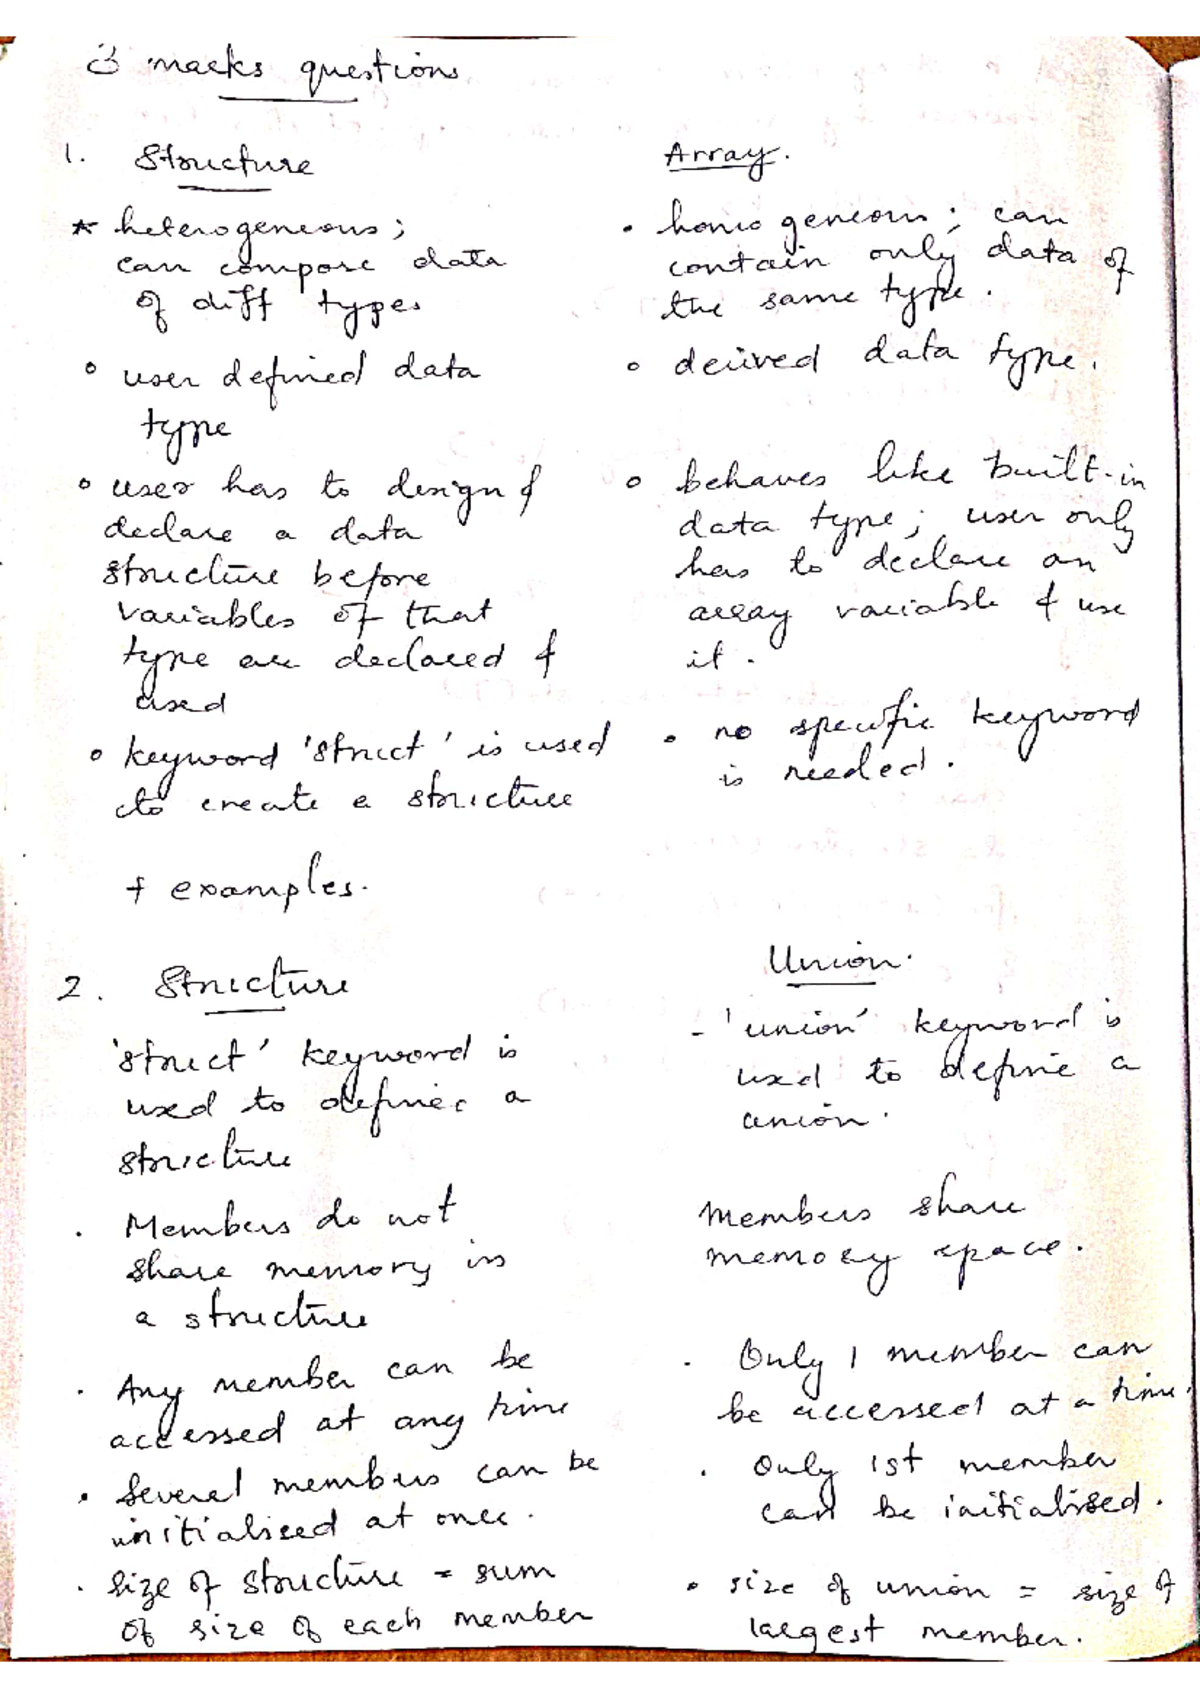 3 marks questions
1. Structure
* heterogeneous;
can compose data
of diff types
• user defined data
type
• user has to design &
declare a data
structure before
variables of that
type are declared &
used
• keyword 'struct' is used
to create a structure
+ examples.
Array.
• homogeneous; can
contain only data of
the same type.
• derived data type.
• behaves like built-in
data type; user only
has to declare an
array variable & use
it.
• no specific keyword
is needed.
2. Structure
'struct' keyword is
used to define a
structure
. Members do not
share memory in
a structure
. Any member can be
accessed at any time
. Several members can be
initialised at once.
. size of structure = sum
of size of each member
Union.
- 'union' keyword is
used to define a
union.
Members share
memory space.
. Only 1 member can
be accessed at a time.
. Only 1st member
can be initialised.
• size of union = size of
largest member.